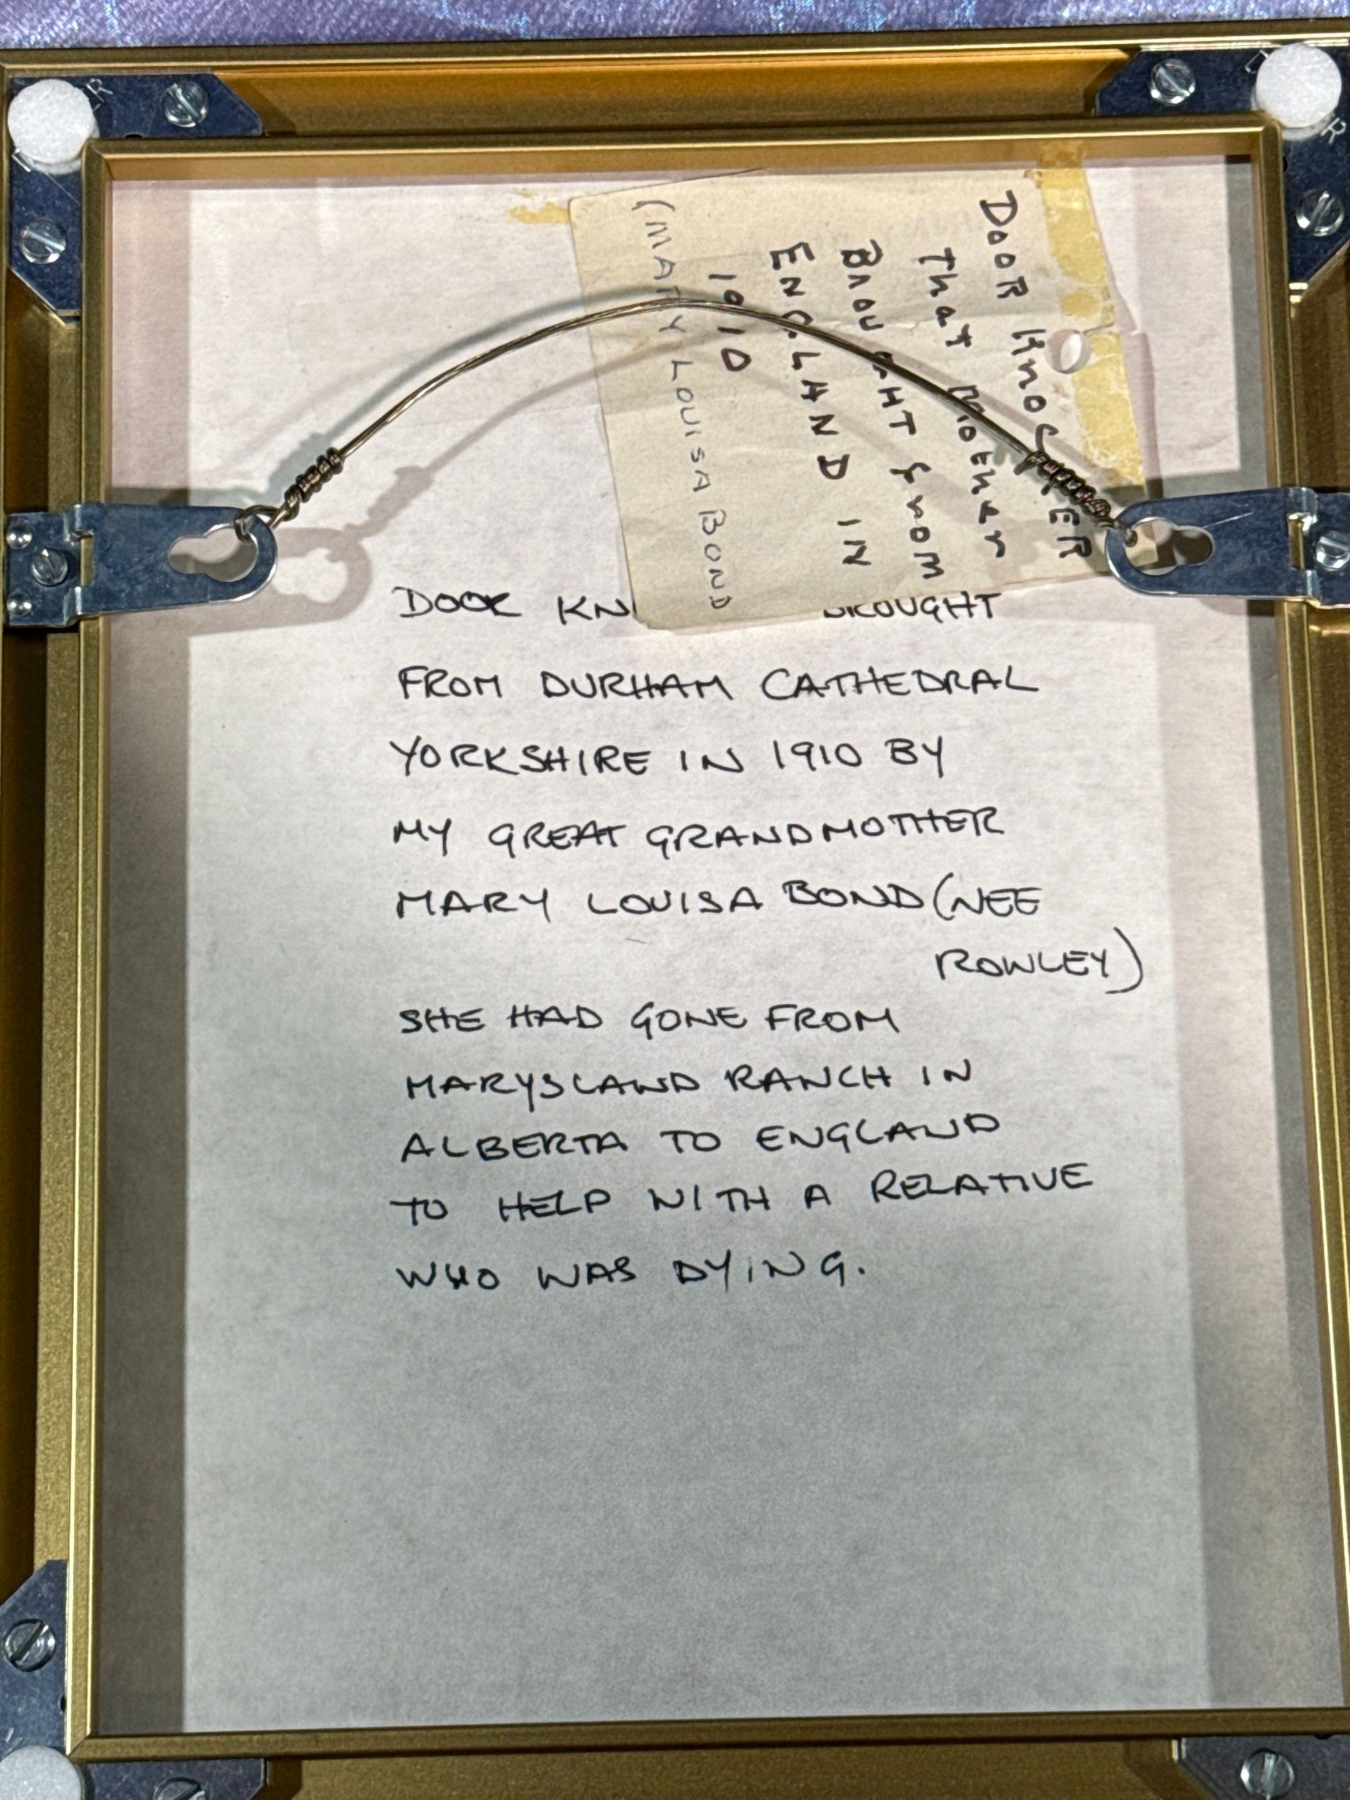 DOOR KNOCKER
That Mother
BROUGHT from
ENGLAND IN
1910
(MARY LOUISA BOND
DOOR KN BROUGHT
FROM DURHAM CATHEDRAL
YORKSHIRE IN 1910 BY
MY GREAT GRANDMOTHER
MARY LOUISA BOND (NEE
ROWLEY)
SHE HAD GONE FROM
MARYSLAND RANCH IN
ALBERTA TO ENGLAND
TO HELP WITH A RELATIVE
WHO WAS DYING.